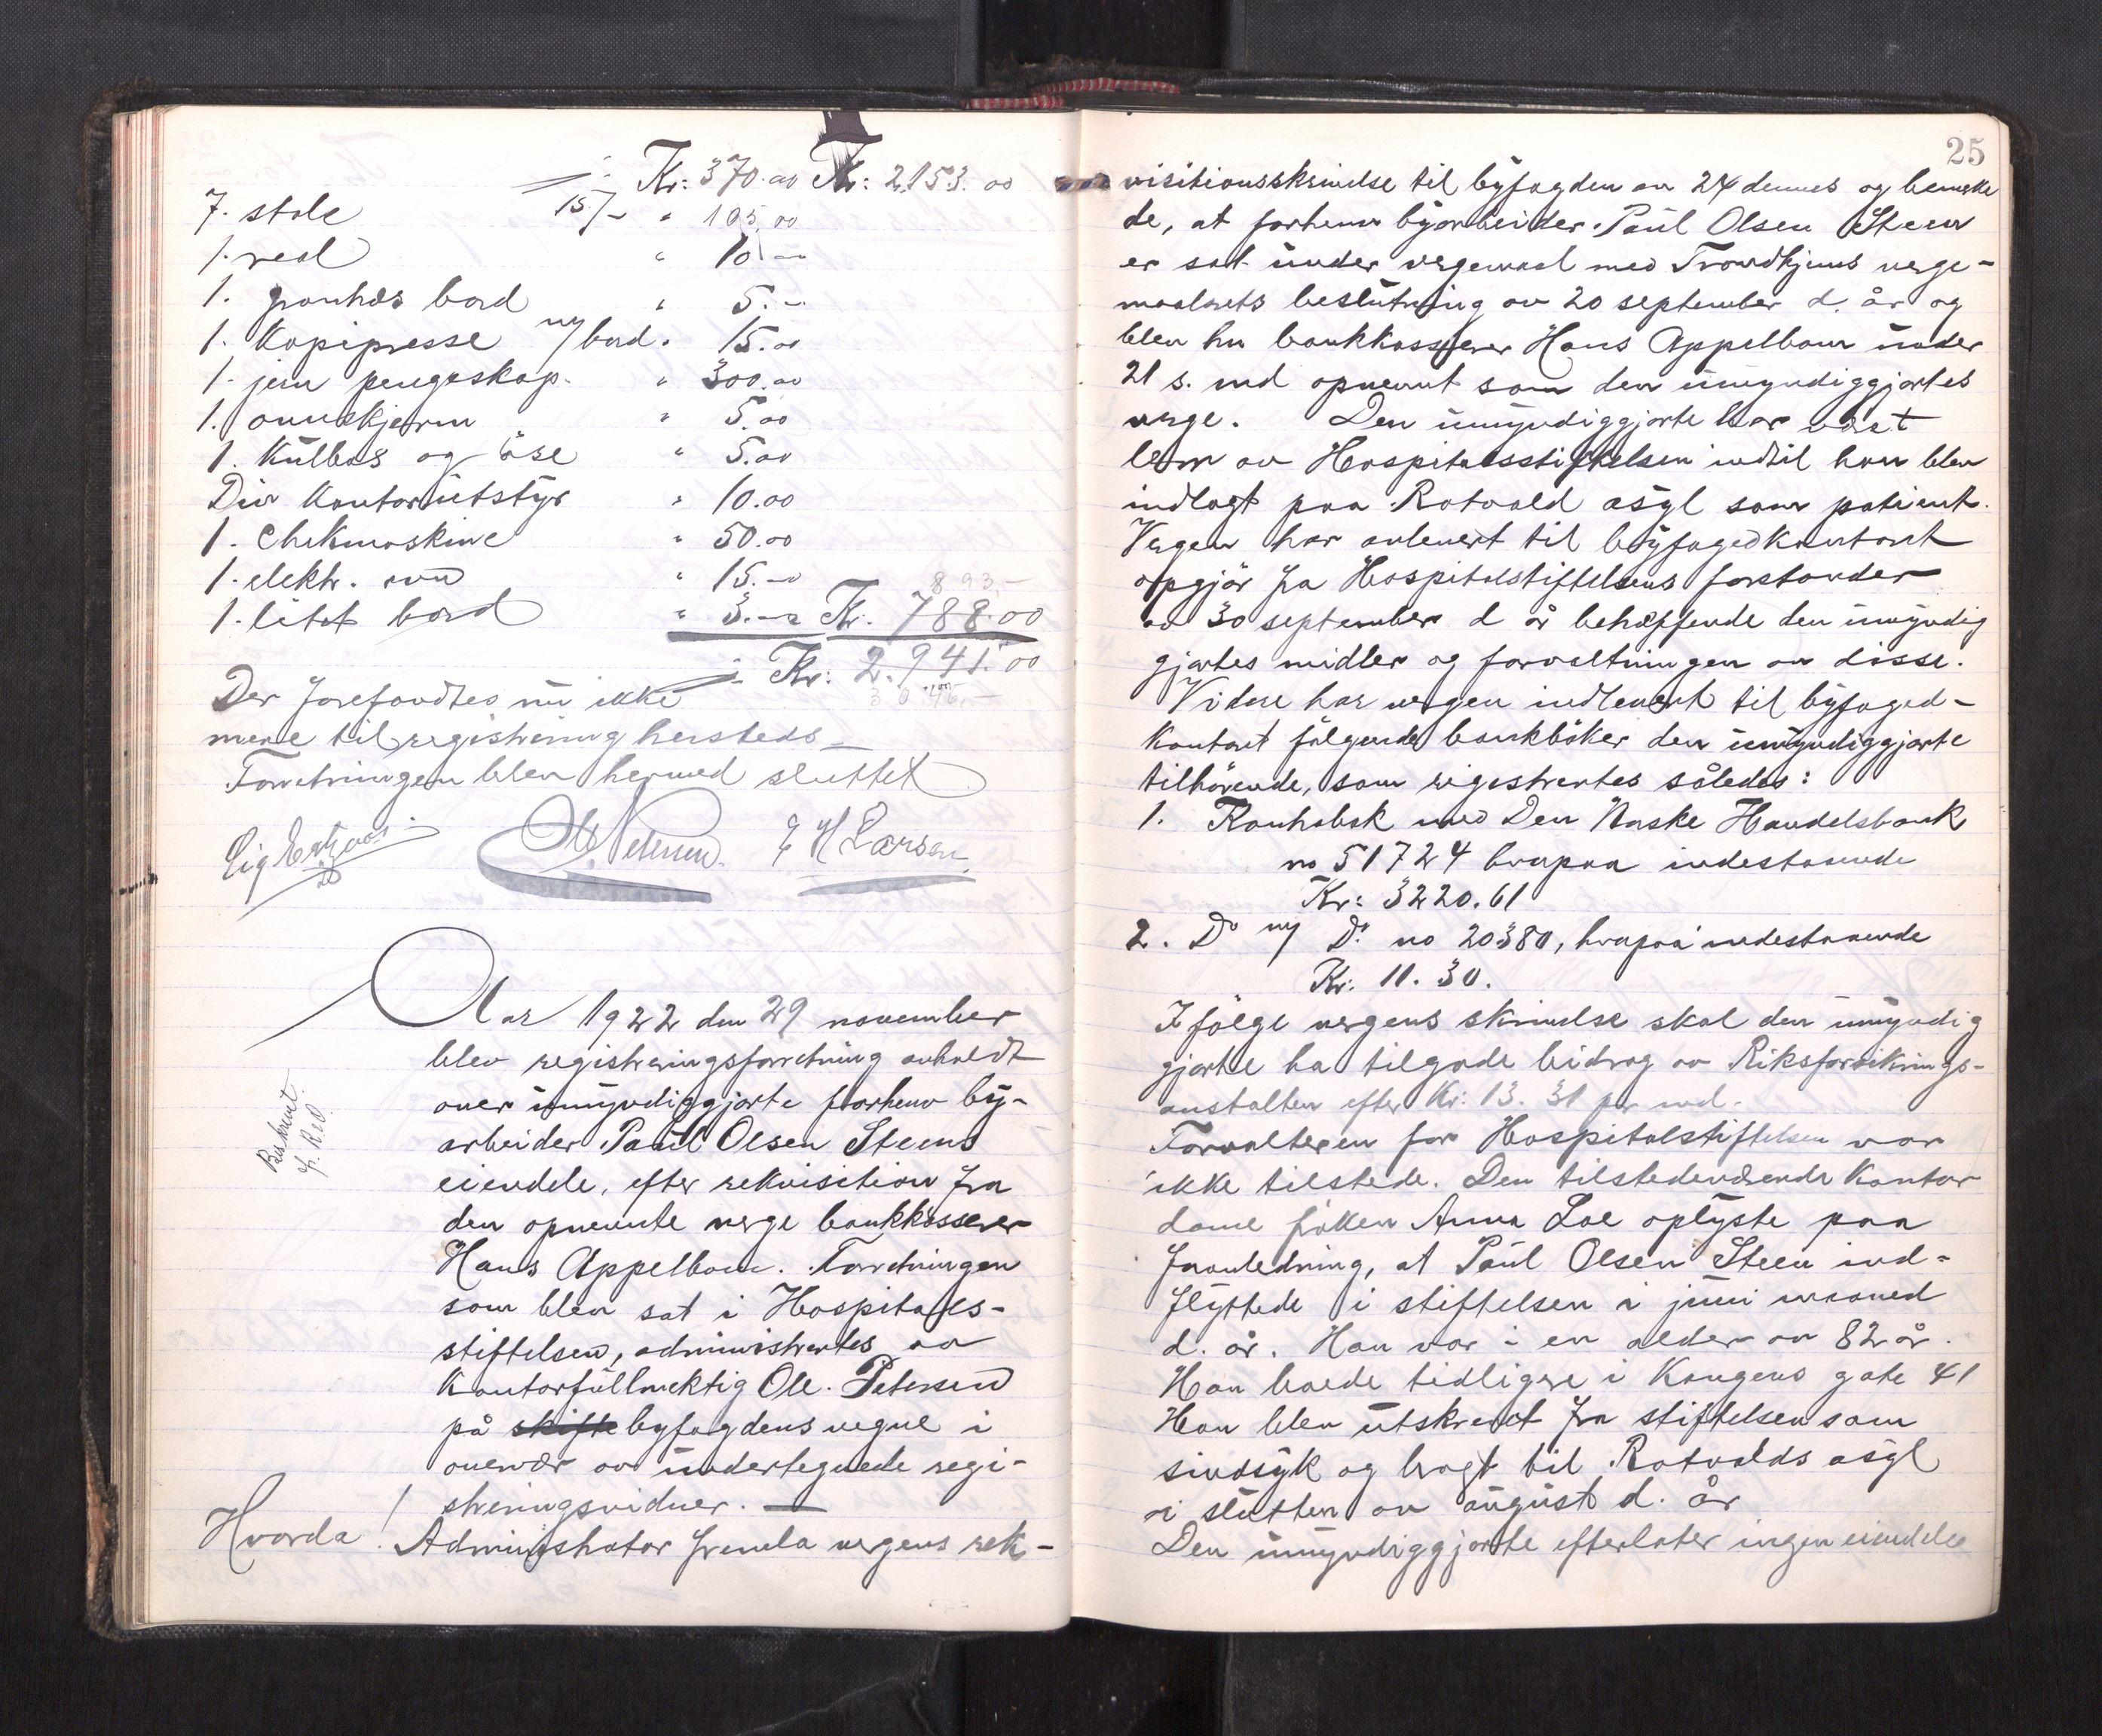 Kr: 370.00 Kr: 2153.00
7. stole 15/- " 105.00
1. reol " 10.-
1. granhds bord " 5.-
1. Kopipresse m/ bord " 15.00
1. jern pengeskap. " 300.00
1. ovnskjerm " 5.00
1. Kulboks og öse " 5.00
Div Kontorutstyr " 10.00
1. Chekmaskine " 50.00
1. elektr. ovn " 15.-
893.-
1. litet bord " 3.- Kr. 788.00
Kr: 2.941.00
3046.-
Der forefandtes nu ikke
mere til registrering hersteds
Forretningen blev hermed sluttet
Ole Petersen. H Larsen
Aar 1922 den 29 november
blev registreringsforretning avholdt
over umyndiggjorte forhenv by-
arbeider Paul Olsen Steens
eiendele, efter rekvisition fra
den opnevnte verge bankkasserer
Hans Appelbom. Forretningen
som blev sat i Hospitals-
stiftelsen, administrertes av
Kontorfuldmektig Ole. Petersen
på skifte byfogdens vegne i
overvær av undertegnede regi-
streringsvidner. —
Beskrevet
Hvorda!
Administrator fremla vergens rek-
25
visitionsskrivelse til byfogden av 24 dennes og bemerke
de, at forhenv byarbeider Paul Olsen Steen
er sat under vergemaal med Trondhjems verge-
maalsrets beslutning av 20 september d. år og
blev hr bankkasserer Hans Appelbom under
21 s. md opnevnt som den umyndiggjortes
verge. Den umyndiggjorte har vært
lem av Hospitalsstiftelsen indtil han blev
indlagt paa Rotvold asyl som patient.
Vergen har avlevert til byfogedkontoret
opgjör fra Hospitalstiftelsens forstander
av 30 september d år behæffende den umyndig
gjortes midler og forvaltningen av disse.
Videre har vergen indlevert til byfoged-
kontoret fölgende bankböker den umyndiggjorte
tilhörende, som registrertes således:
1. Kontrabok med Den Norske Handelsbank
no 51724 hvorpaa indestaaende
Kr: 3220.61
2. Do m/ Do. no 20380, hvorpaa indestaaende
Kr: 11.30.
Ifölge vergens skrivelse skal den umyndig
gjorte ha tilgode bidrag av Riksforsikrings-
anstalten efter Kr: 13.31 pr md.
Forvalteren for Hospitalstiftelsen var
ikke tilstede. Den tilstedeværende Kontor
dame fröken Anna Loe oplyste paa
foranledning, at Paul Olsen Steen ind-
flyttede i stiftelsen i juni maaned
d. år. Han var i en alder av 82 år.
Han boede tidligere i Kongens gate 41
Han blev utskrevet fra stiftelsen som
sindsyk og bragt til Rotvolds asyl
i slutten av august d. år
Den umyndiggjorte efterlater ingen eiendele